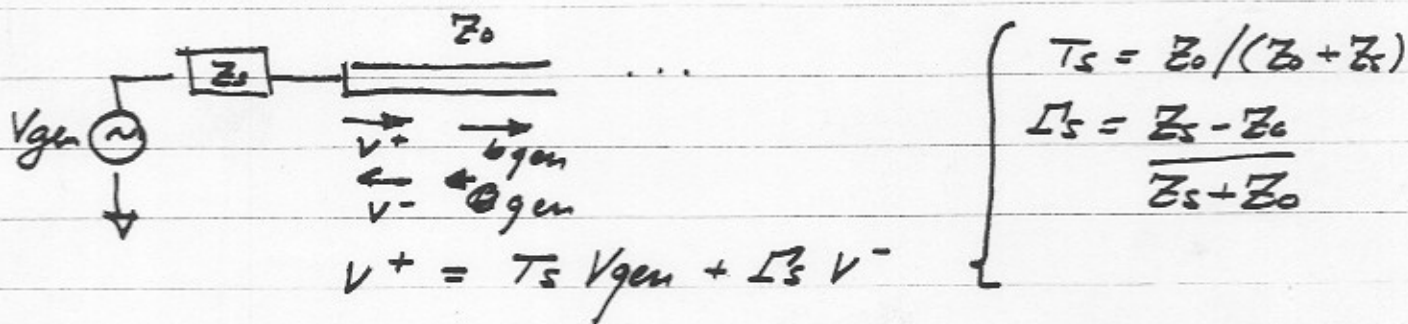 Z₀
Zₛ
...
Vgen
~
v⁺
bgen
v⁻
agen
v⁺ = Tₛ Vgen + Γₛ v⁻
Tₛ = Z₀/(Z₀ + Zₛ)
Γₛ = Zₛ - Z₀
Zₛ + Z₀